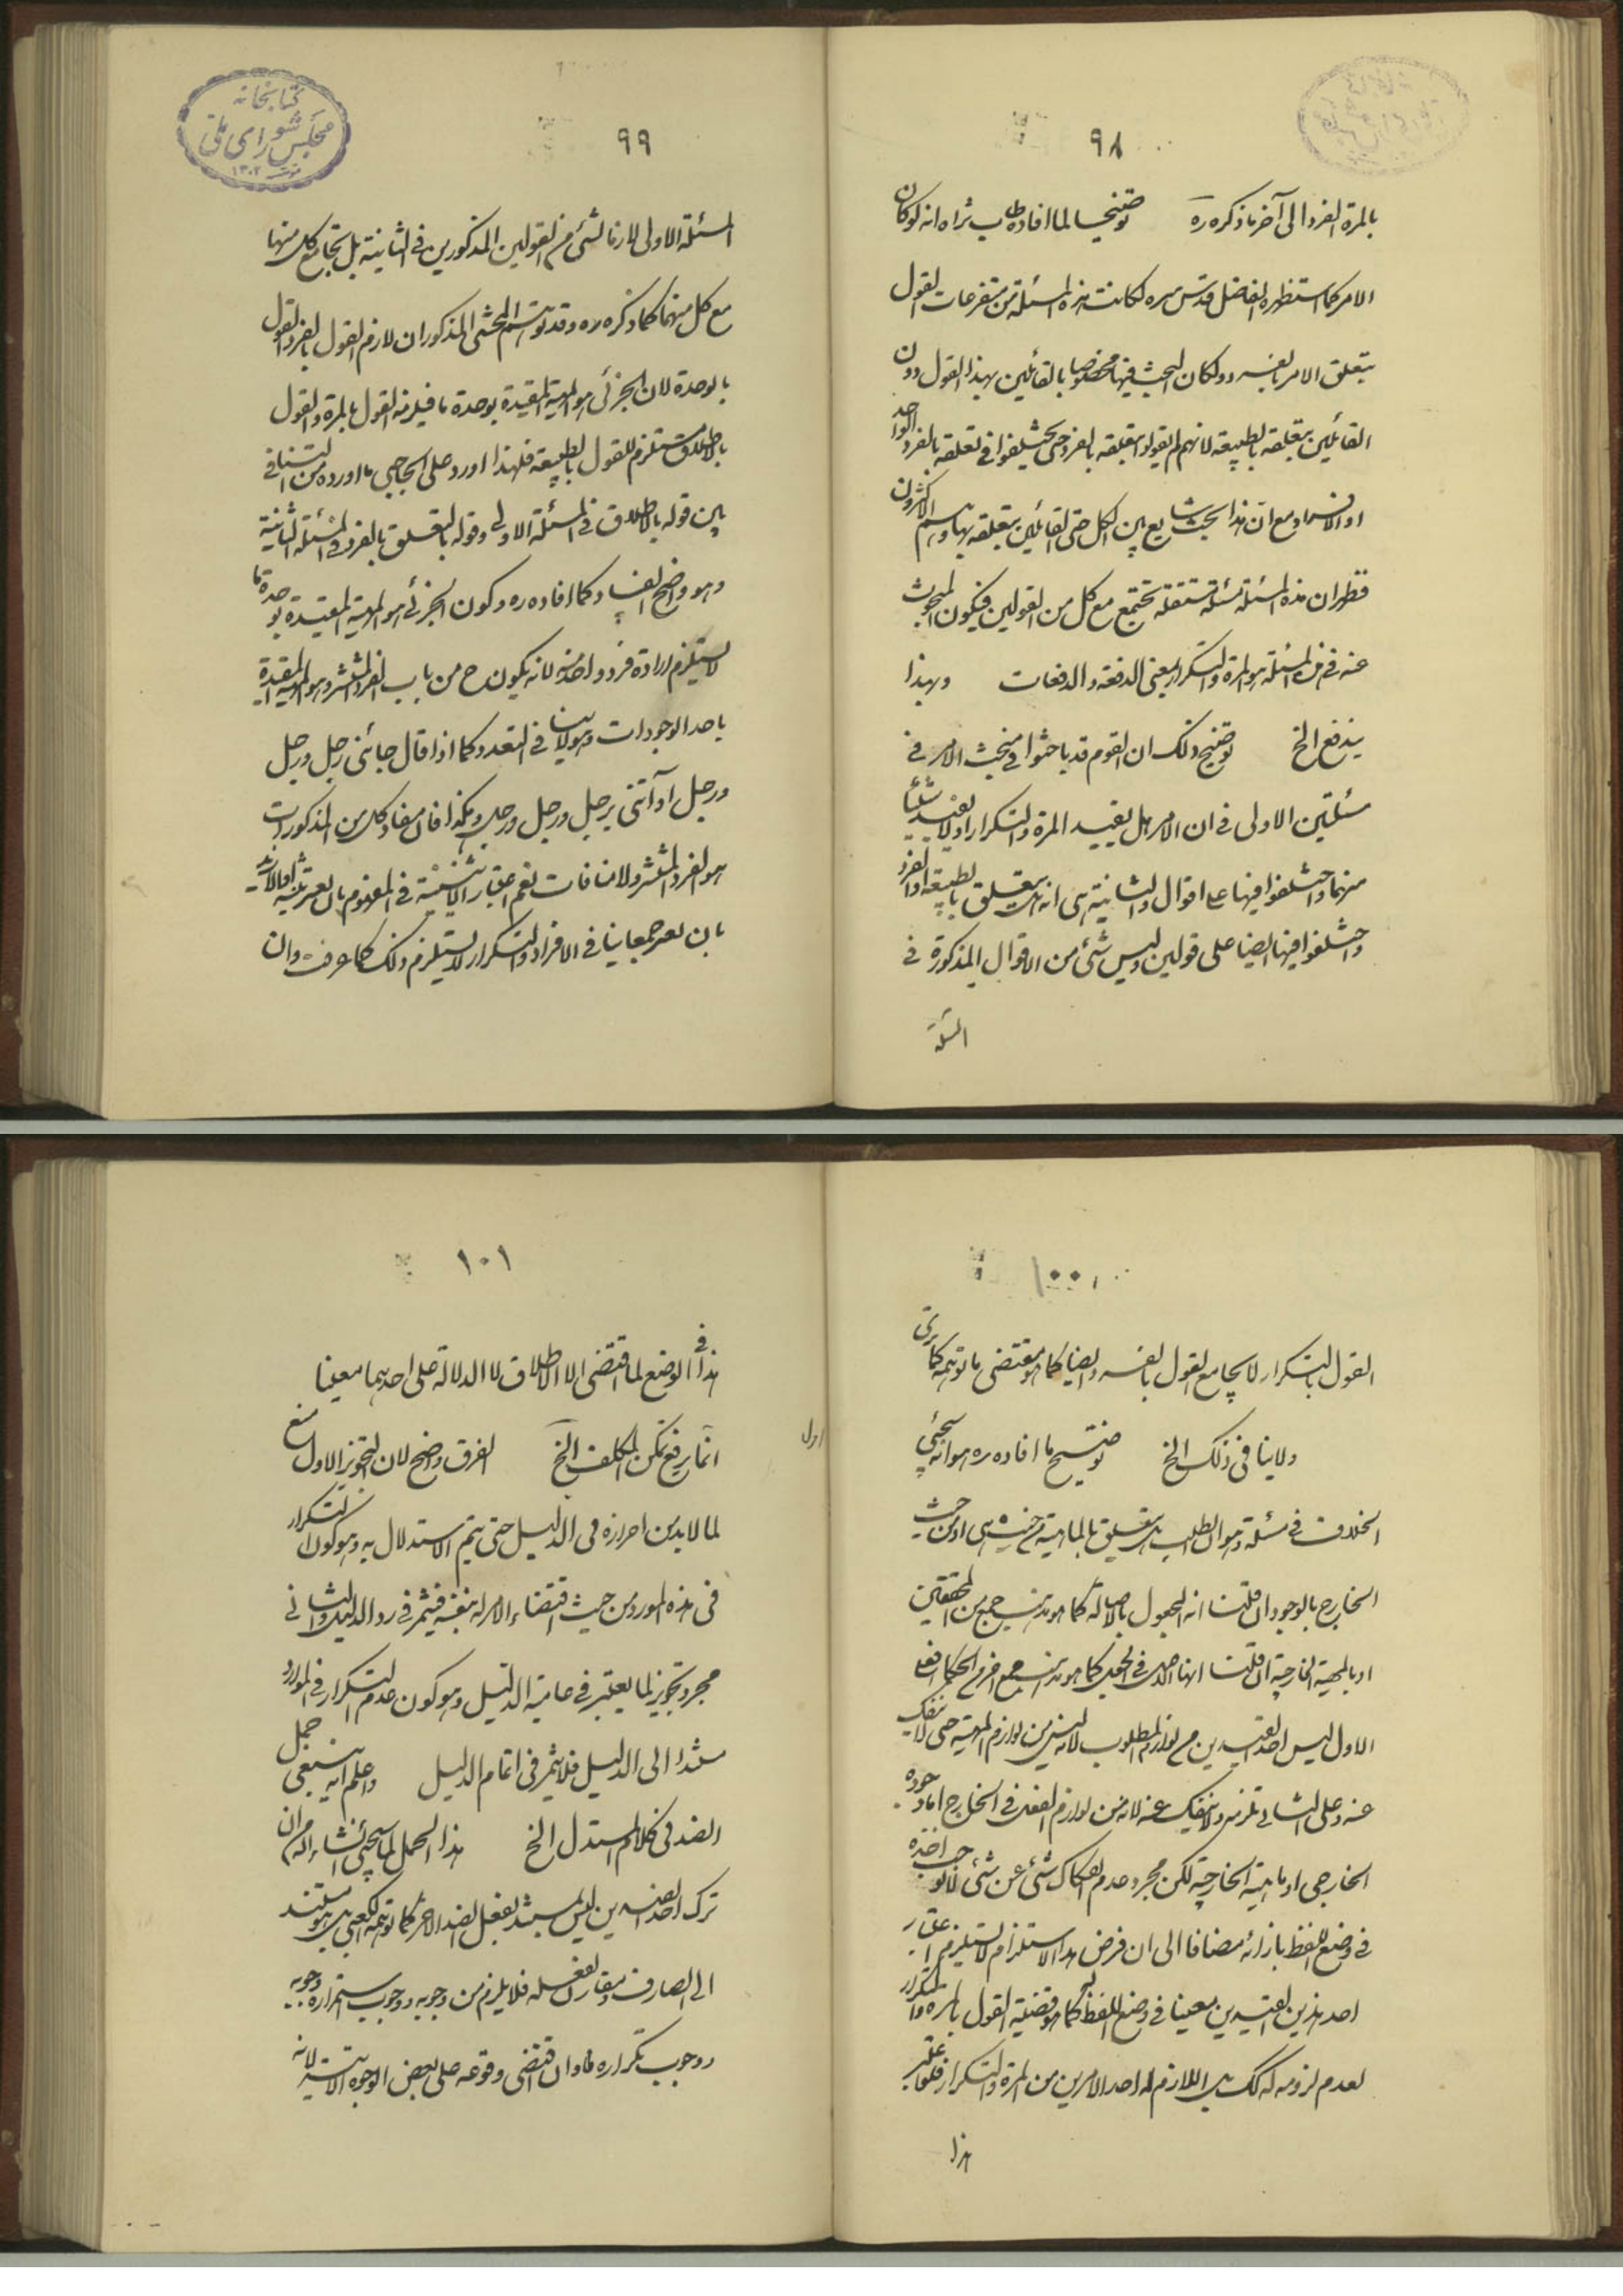 ٩٨
بالمرة الفرد الى آخر ما ذكره ره توضيحا لما افاده طاب ثراه انه لو كان
الامر كما استظهره الفاضل قدس سره لكانت هذه المسئلة من متفرعات القول
بتعلق الامر بالفرد ولكان البحث فيها مخصوصا بالقائلين بهذا القول دون
القائلين بتعلقه بالطبيعة لانهم لم يقولوا بتعلقه بالفرد حتى يختلفوا في تعلقه بالفرد الواحد
او الافراد مع ان هذا بحث شايع بين الكل حتى القائلين بتعلقه بها وهم الاكثرون
فظهر ان هذه المسئلة مسئلة مستقلة تجتمع مع كل من القولين فيكون المبحوث
عنه في هذه المسئلة هو المرة والتكرار بمعنى الدفعة والدفعات وبهذا
يندفع الخ توضيح ذلك ان القوم قد باحثوا في مبحث الامر في
مسئلتين الاولى في ان الامر هل يفيد المرة والتكرار او لا يفيد شيئا
منهما واختلفوا فيها على اقوال والثانية هى انه هل يتعلق بالطبيعة او الفرد
واختلفوا فيها ايضا على قولين وليس شئ من الاقوال المذكورة في
المسئلة
٩٩
كتابخانه
مجلس شوراى ملى
١٣٠٢
المسئلة الاولى لازما لشئ من القولين المذكورين في الثانية بل تجامع كل منها
مع كل منهما كما ذكره ره وقد توهم المحشى المذكور ان لازم القول بالفرد القول
بالوحدة لان الجزئى هو المهية المقيدة بوحدة ما فيلزمه القول بالمرة والقول
بالاطلاق مستلزم للقول بالطبيعة فلهذا اورد على الحاجبى ما اورده من التنافى
بين قوله بالاطلاق في المسئلة الاولى وقوله بالتعلق بالفرد في المسئلة الثانية
وهو واضح الفساد كما افاده ره وكون الجزئى هو المهية المقيدة بوحدة ما
لا يستلزم ارادة فرد واحد منه لانه يكون ح من باب الفرد المنتشر وهو المهية المقيدة
باحد الوجودات وهو لا ينافى التعدد كما اذا قال جائنى رجل ورجل
ورجل او آتنى برجل ورجل ورجل وهكذا فان مفاد كل من المذكورات
هو الفرد المنتشر ولا منافات نعم اعتبار الاثنينية في المفهوم بان يعتبر
بان يعتبر جمعا ينافى الافراد والتكرار لا يستلزم ذلك كما عرفت وان
١٠٠
القول بالتكرار لا يجامع القول بالفرد ايضا كما هو مقتضى ما توهمه كما ترى
ولا ينافى ذلك الخ توضيح ما افاده ره هو انه سيجئ
الخلاف في مسئلة وهو ان الطلب هل يتعلق بالماهية من حيث هى او من حيث
الخارج بالوجود ان قلنا انه المجعول بالاصالة كما هو مذهب جمع من المحققين
او بالمهية الخارجية ان قلنا انها الاصل في الجعل كما هو مذهب جمع اخر من الحكماء فعلى
الاول ليس احد القيدين من لوازم المطلوب لانه ليس من لوازم المهية حتى لا ينفك
عنه وعلى الثانى تلزمه ولا ينفك عنه لانه من لوازم الفعل في الخارج اما وجوده
الخارجى او ماهيته الخارجية لكن مجرد عدم انفكاك شئ عن شئ لا يوجب اخذه
في وضع اللفظ بازائه مضافا الى ان فرض هذا الاستلزام لا يستلزم اعتبار
احد هذين القيدين معينا في وضع اللفظ له كما هو قضية القول بالمرة والتكرار
لعدم لزومه له كك بل اللازم له احد الامرين من المرة والتكرار فلو اعتبر
هذا
١٠١
هذا في الوضع لما اقتضى الا الاطلاق لا الدلالة على احديهما معينا
انما يرفع تمكن المكلف الخ الفرق واضح لان التجويز الاول منع
لما لا بد من احرازه في الدليل حتى يتم الاستدلال به وهو كون التكرار
في هذه الموارد من حيث اقتضاء الامر له بنفسه فيثمر في رد الدليل والثانى
مجرد تجويز لما يعتبر في تمامية الدليل وهو كون عدم التكرار في الموارد
مستندا الى الدليل فلا يثمر في اتمام الدليل واعلم انه ينبغى حمل
الضد في كلام المستدل الخ هذا الحمل لما سيجئ انشاء الله من ان
ترك احد الضدين ليس مستندا لفعل الضد الاخر كما توهمه الكعبى بل هو مستند
الى الصارف ومقارن لفعله فلا يلزم من وجوبه وجوب استمراره وجوبه
ووجوب تكراره فاذا وان اقتضى وقوعه على بعض الوجوه الاتية لانه